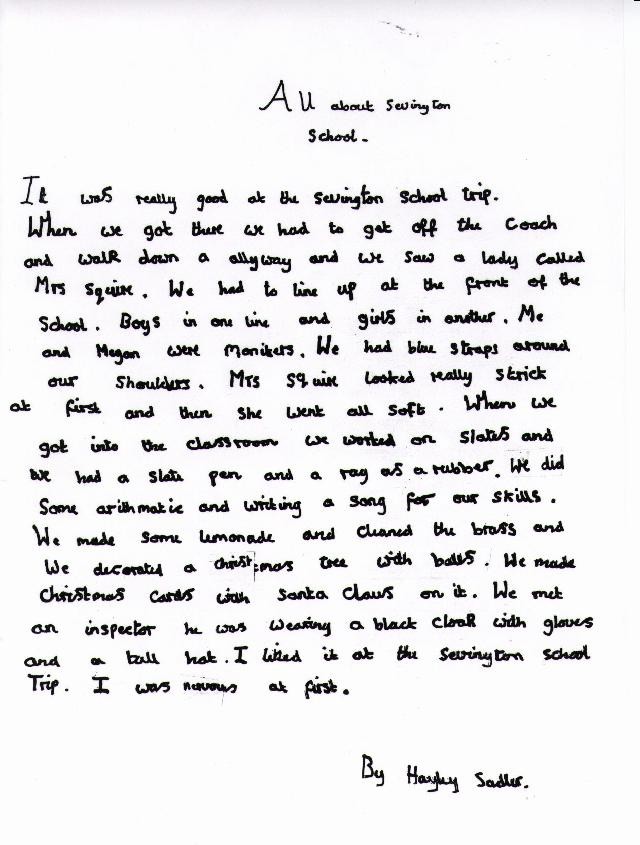 All about Sevington
School.
It was really good at the Sevington School trip.
When we got there we had to get off the Coach
and walk down a allyway and we saw a lady called
Mrs Squire. We had to line up at the front of the
School. Boys in one line and girls in another. Me
and Megan were Moniters. We had blue straps around
our Shoulders. Mrs Squire looked really strick
at first and then she went all soft. When we
got into the classroom we worked on slates and
we had a slate pen and a rag as a rubber. We did
Some arithmatic and writing a song for our skills.
We made some lemonade and cleaned the brass and
We decorated a christmas tree with balls. We made
Christmas cards with Santa Claus on it. We met
an inspector he was wearing a black cloak with gloves
and a tall hat. I liked it at the Sevington school
Trip. I was nervous at first.
By Hayley Sadler.